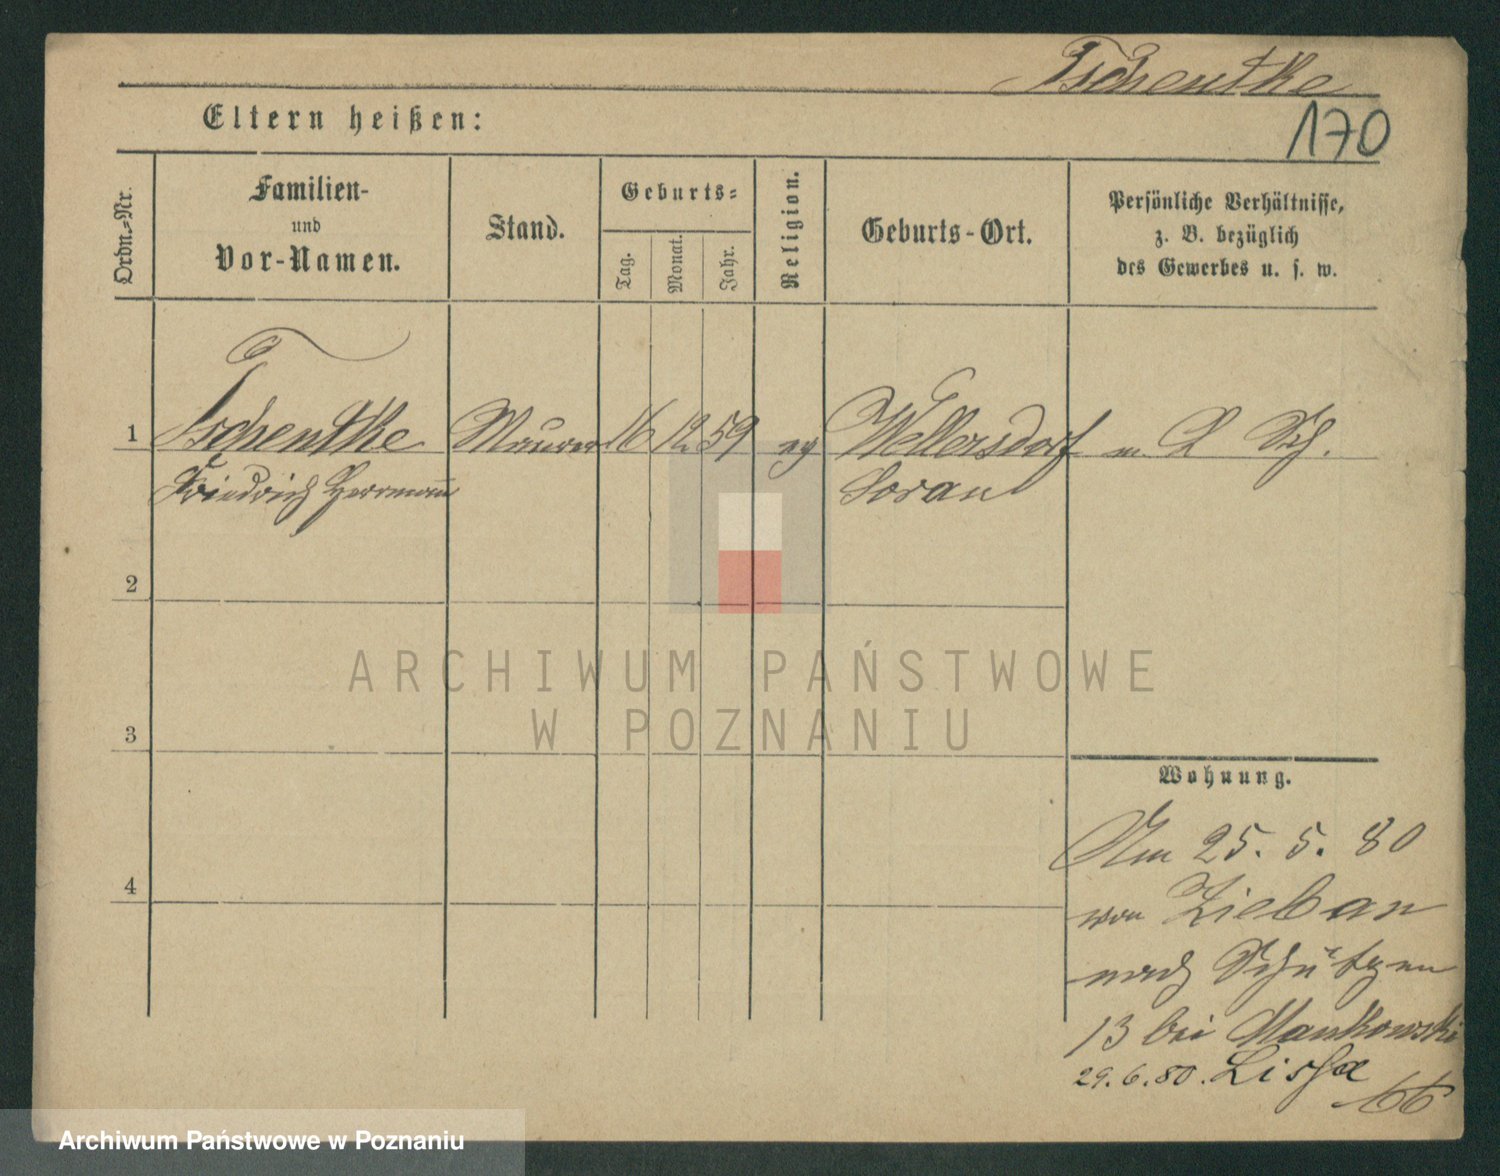 Tschentke
170
Eltern heißen:
Ordn.-Nr.
Familien-
und
Vor-Namen.
Stand.
Geburts-
Tag.
Monat.
Jahr.
Religion.
Geburts-Ort.
Persönliche Verhältnisse,
z. B. bezüglich
des Gewerbes u. s. w.
1 Tschentke Maurer 16 12 59 eg Wellersdorf
Friedrich Herrmann Sorau
2
3
4
Wohnung.
Am 25. 5. 80
von
nach Schützen
13 bei Mankowski
29. 6. 80. Lissa
66
ARCHIWUM PAŃSTWOWE
W POZNANIU
Archiwum Państwowe w Poznaniu